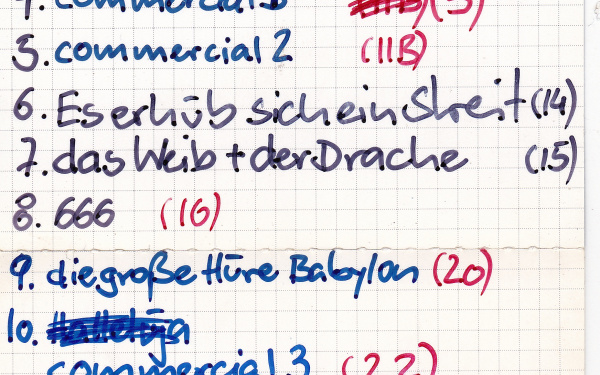 4. commercial (13)
5. commercial 2 (11B)
6. Es erhūb sich ein Streit (14)
7. das Weib + der Drache (15)
8. 666 (16)
9. die große Hūre Babylon (20)
10. Hallelūja
commercial 3 (22)